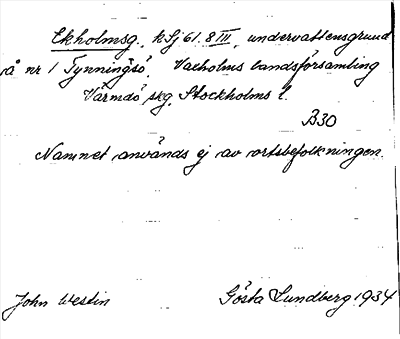 Ekholmsg., k Sj 61. 8 III, undervattensgrund
å nr 1 Tynningsö, Vaxholms landsförsamling
Värmdö skg, Stockholms l.
B30
Namnet används ej av ortsbefolkningen.
John Westin Gösta Lundberg 1934